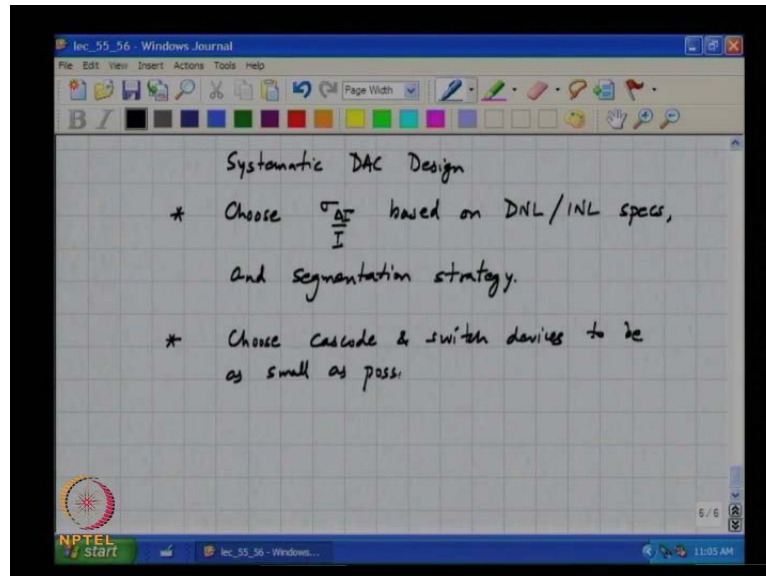 lec_55_56 - Windows Journal
File Edit View Insert Actions Tools Help
Page Width
B I
Systematic DAC Design
* Choose σ ΔI/I based on DNL/INL specs,
and segmentation strategy.
* Choose cascode & switch devices to be
as small as poss.
6/6
NPTEL
start
lec_55_56 - Windows...
11:05 AM